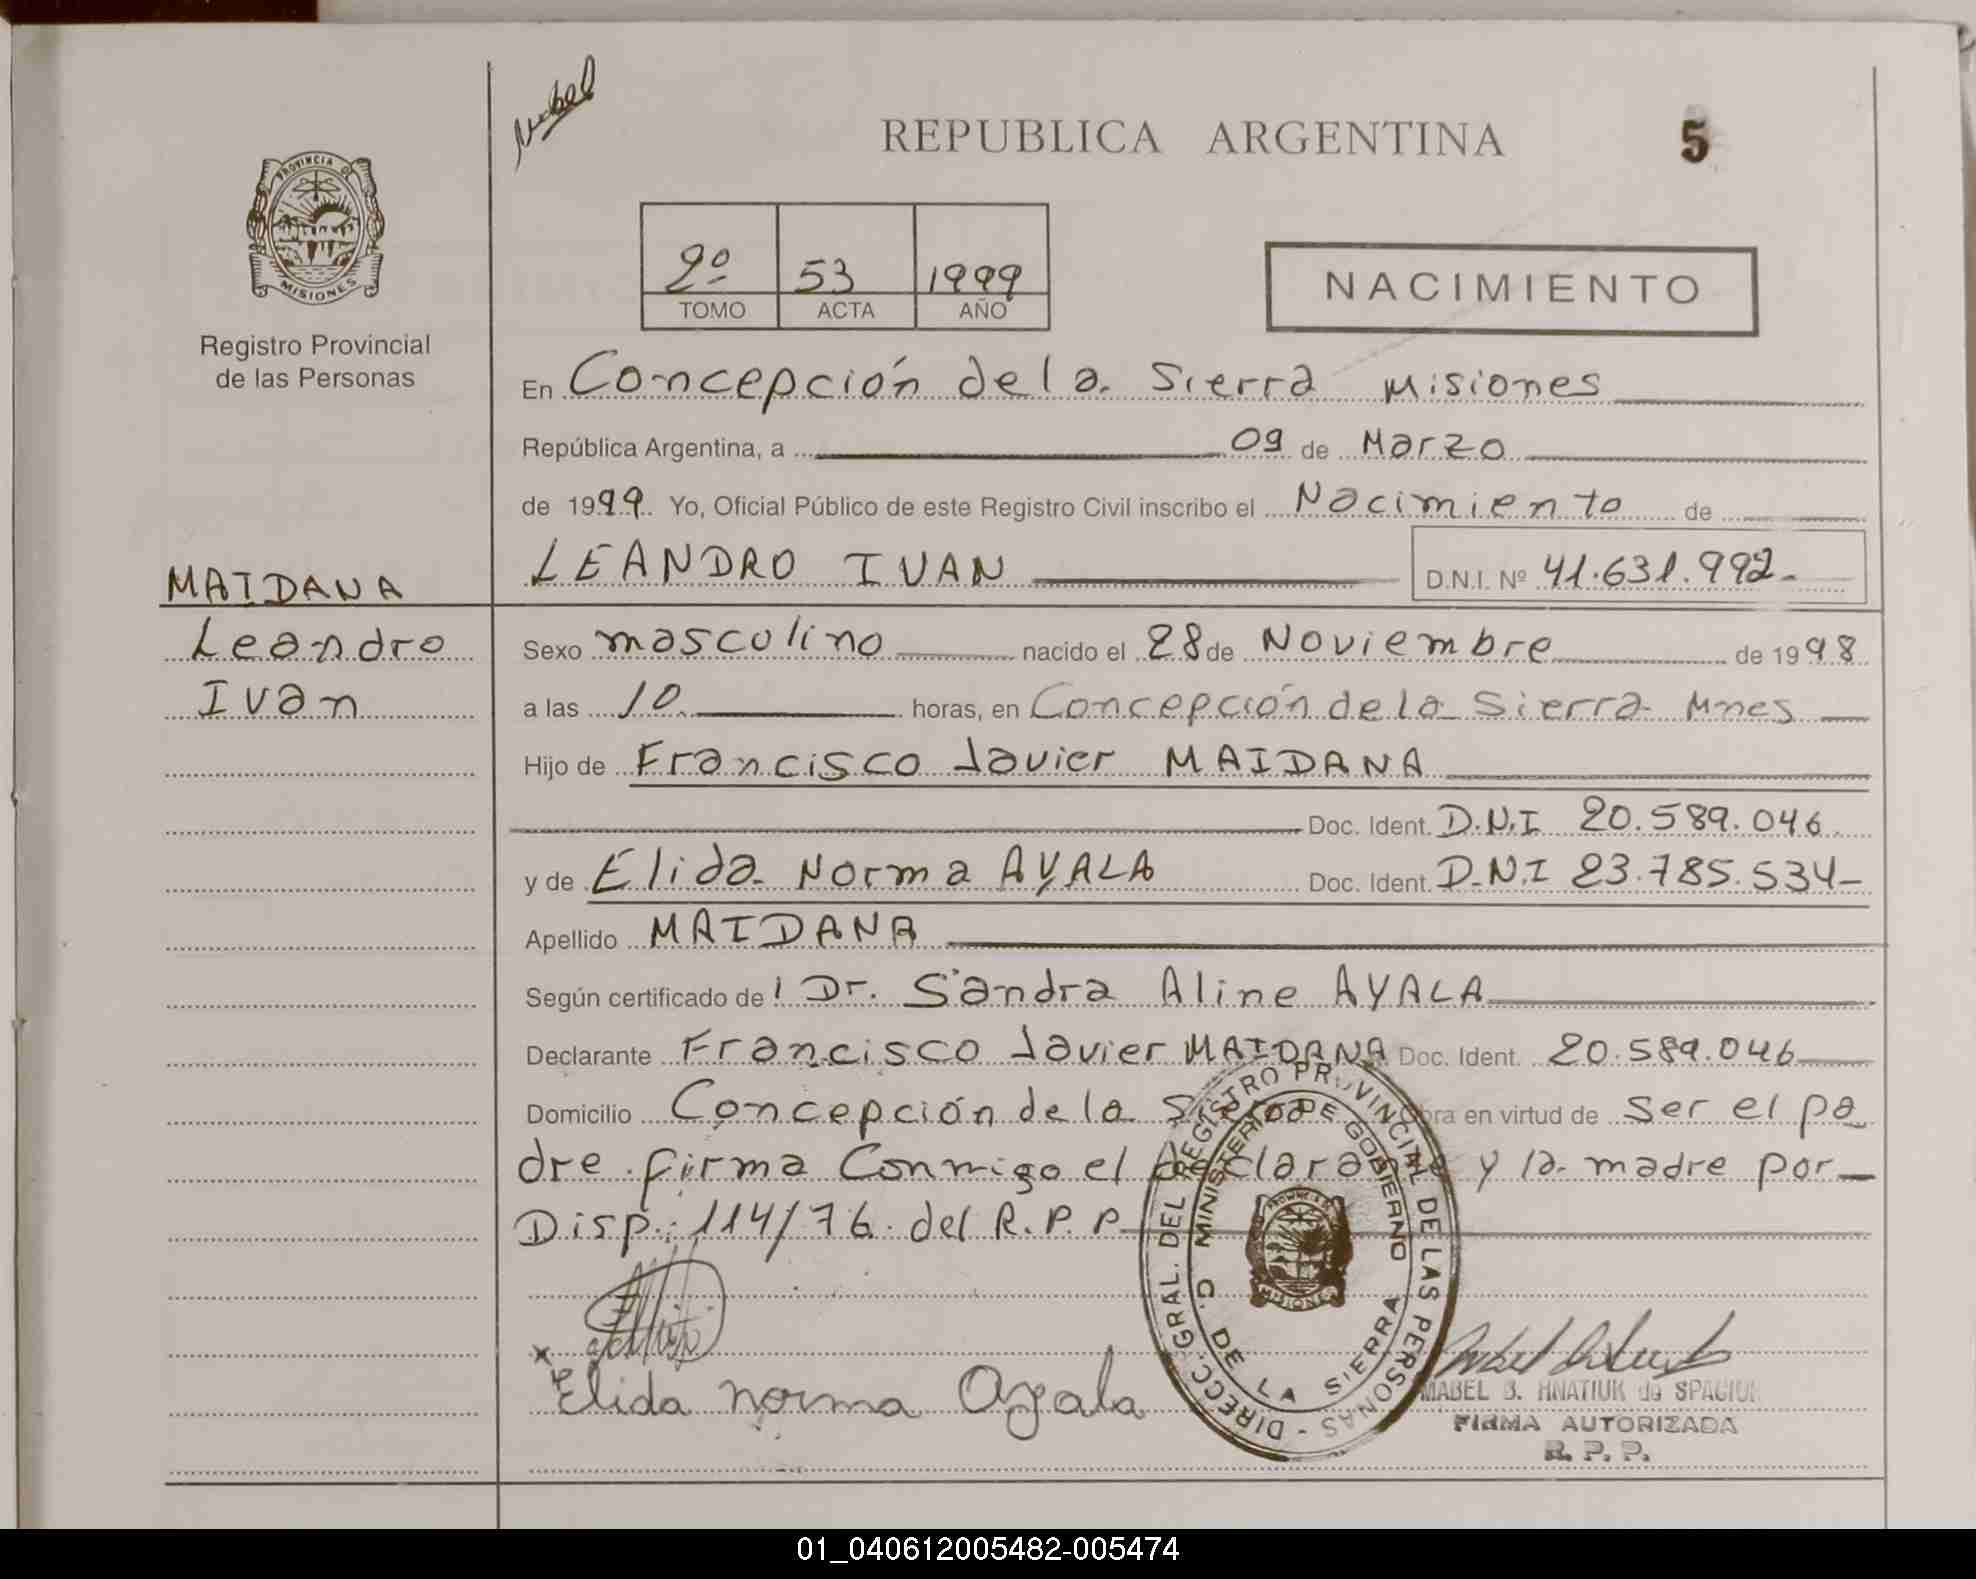 Mabel
REPUBLICA ARGENTINA
5
PROVINCIA DE
MISIONES
Registro Provincial
de las Personas
2º 53 1999
TOMO ACTA AÑO
NACIMIENTO
En Concepción de la Sierra Misiones
República Argentina, a 09 de Marzo
de 1999. Yo, Oficial Público de este Registro Civil inscribo el Nacimiento de
LEANDRO IVAN D.N.I. Nº 41.631.992-
MAIDANA
Leandro
Ivan
Sexo masculino nacido el 28 de Noviembre de 1998
a las 10 horas, en Concepción de la Sierra Mnes
Hijo de Francisco Javier MAIDANA
Doc. Ident. D.N.I 20.589.046
y de Elida Norma AYALA Doc. Ident. D.N.I 23.785.534-
Apellido MAIDANA
Según certificado de l Dr. Sandra Aline AYALA
Declarante Francisco Javier MAIDANA Doc. Ident. 20.589.046
Domicilio Concepción de la Sierra Obra en virtud de Ser el pa
dre. firma Conmigo el declarante y la madre por
Disp: 114/76 del R.P.P.
DIRECC. GRAL. DEL REGISTRO PROVINCIAL DE LAS PERSONAS -
MINISTERIO DE GOBIERNO
C. DE LA SIERRA
PROVINCIA DE
MISIONES
Elida norma Ayala
MABEL B. HNATIUK de SPACIUK
FIRMA AUTORIZADA
R. P. P.
01_040612005482-005474